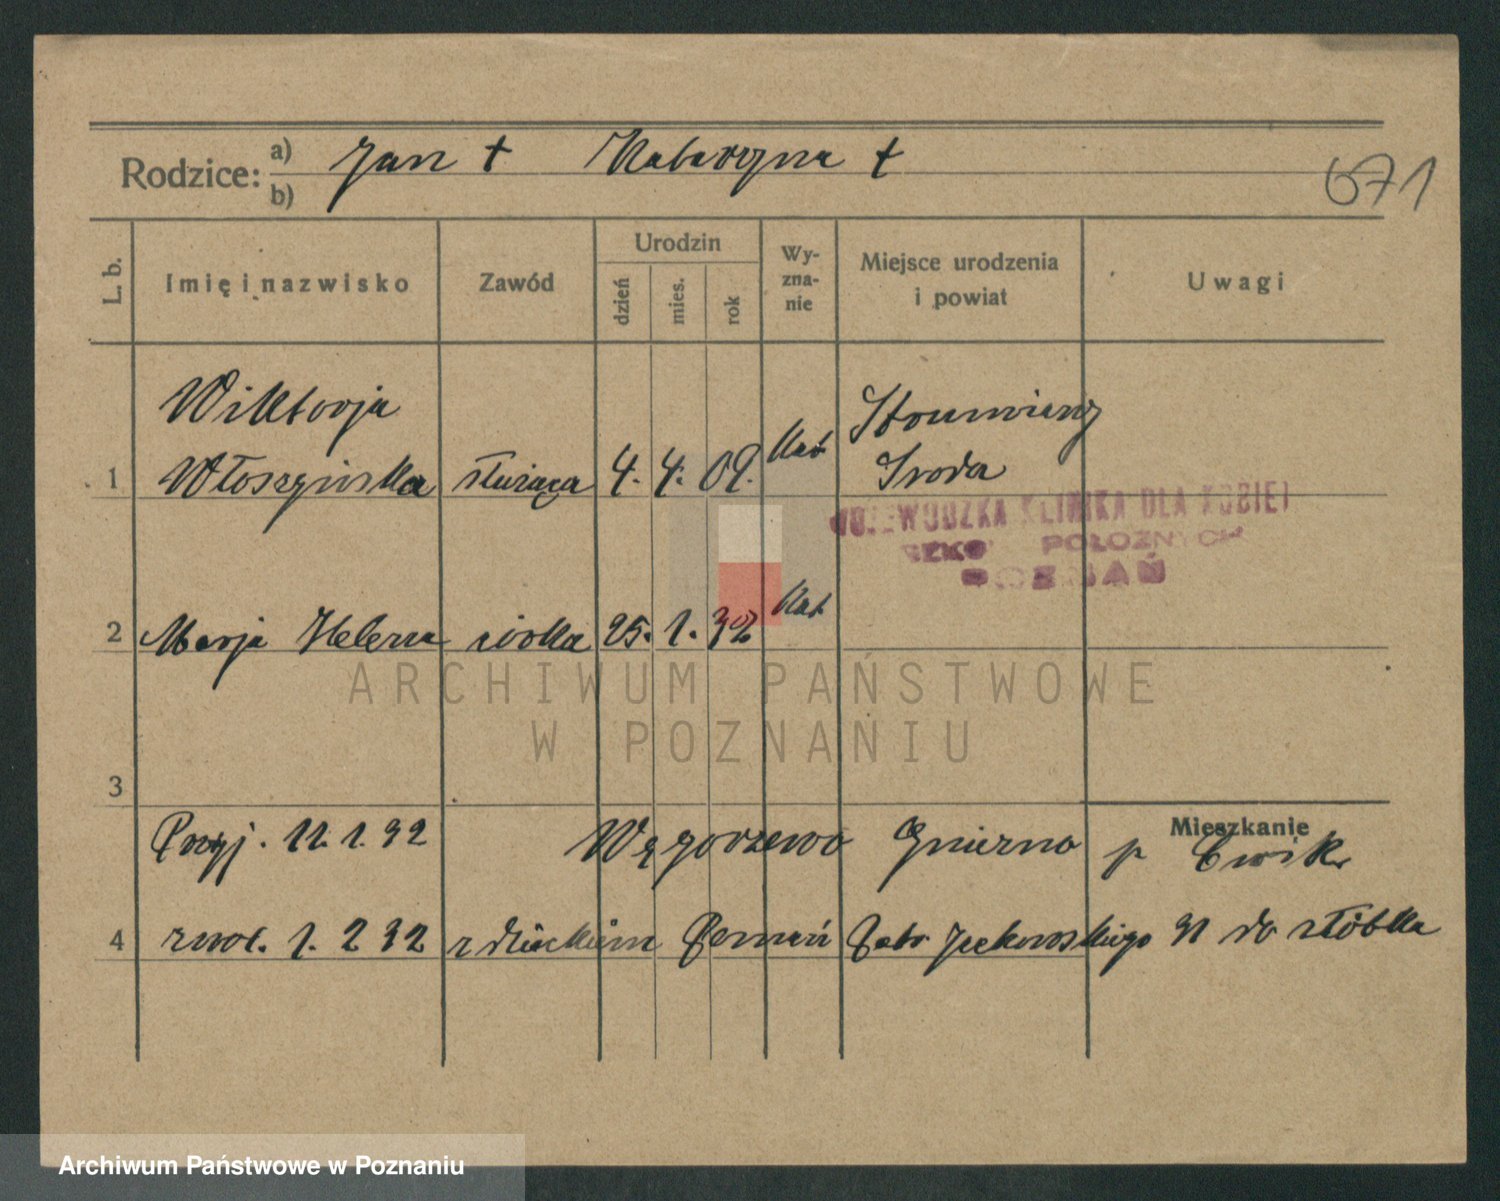 Rodzice: a) Jan + Katarzyna +
b)
671
L. b. Imię i nazwisko Zawód Urodzin dzień mies. rok Wy-zna-nie Miejsce urodzenia i powiat Uwagi
Wiktorja
1 Włoszyńska służąca 4. 4. 09. Kat
Środa
WOJEWÓDZKA KLINIKA DLA KOBIET
POŁOŻNYCH
POZNAŃ
2 Marja Helena córka 25. 1. 32 Kat
ARCHIWUM PAŃSTWOWE
W POZNANIU
3
Mieszkanie
Przyj. 11. 1. 32 Węgorzewo Gniezno p Ćwik
4 zwol. 1. 2 32 z dzieckiem Poznań 31 do żłóbka
Archiwum Państwowe w Poznaniu